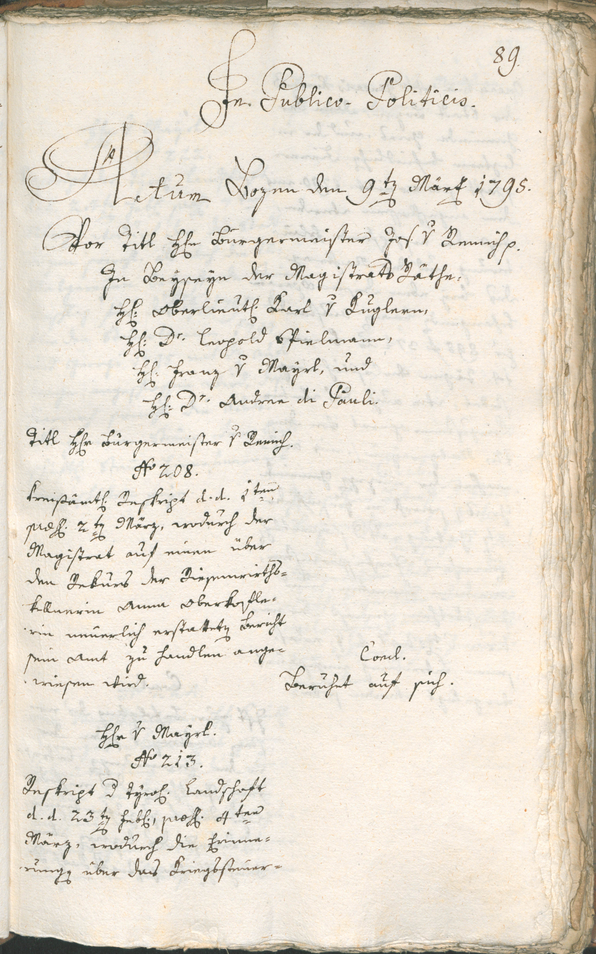 89.
In Publico-Politicis.
Actum Bozen den 9ten März 1795.
Vor Titl Hrn Bürgermeister Jos. v Remich p.
In Beyseyn der Magistrats Räthe,
H: Oberlieut. Karl v Kuglern,
H: Dr. Leopold Spielmann,
H: Franz v Mayrl, und
H: Dr. Andree di Pauli.
Titl Hr Bürgermeister v Remich.
No 208.
Kreisämtl. Reskript d.d. 1ten
præs. 2ten März, wodurch der
Magistrat auf einen über
den Rekurs der Riesenwirths-
kellnerin Anna Oberkofle-
rin neuerlich erstatteten Bericht
sein Amt zu handlen ange-
wiesen wird.
Concl.
Beruhet auf sich.
Hr v Mayrl.
No 213.
Reskript d tyrol. Landschaft
d.d. 23ten Febr. præs. 4ten
März, wodurch die Erinne-
rung über das Kriegssteuer-